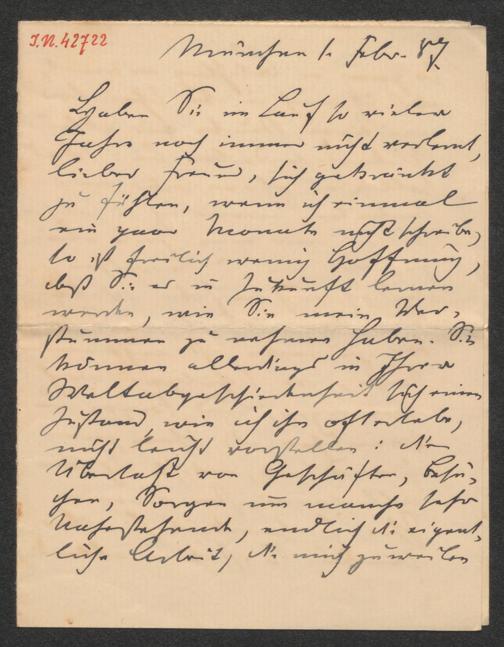 I.N. 42722
München 1. Febr. 87.
Haben Sie im Lauf so vieler
Jahre noch immer nicht verlernt,
lieber Freund, sich gekränkt
zu fühlen, wenn ich einmal
ein paar Monate nicht schreibe,
so ist freilich wenig Hoffnung,
daß Sie es in Zukunft lernen
werden, wie Sie mein Ver-
stummen zu nehmen haben. Sie
können allerdings in Ihrer
Weltabgeschiedenheit sich einen
Zustand, wie ich ihn oft erlebe,
nicht leicht vorstellen: die
Überlast von Geschäften, Besu-
chen, Sorgen um manche sehr
Nahestehende, endlich die eigent-
liche Arbeit, die mich zuweilen